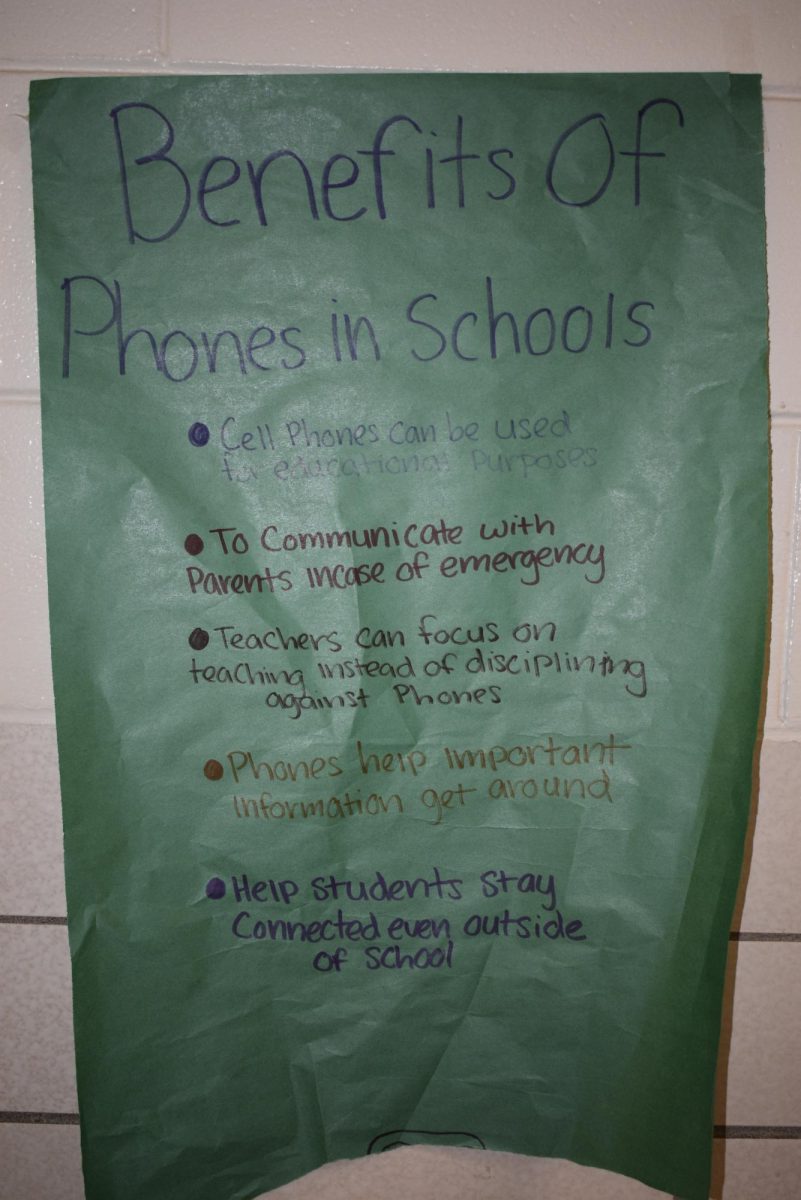 Benefits Of
Phones in Schools
• Cell Phones can be used
for educational Purposes
• To Communicate with
Parents incase of emergency
• Teachers can focus on
teaching instead of disciplining
against Phones
• Phones help important
information get around
• Help students stay
Connected even outside
of school